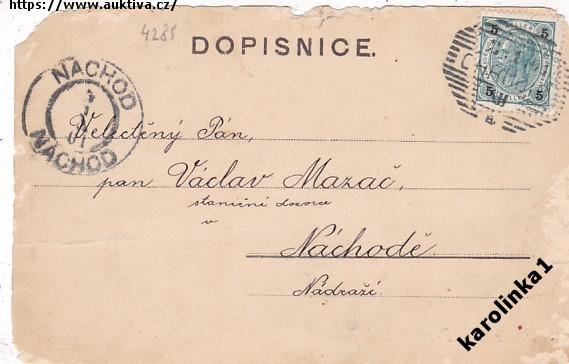 https://www.auktiva.cz/
4285
DOPISNICE.
5 5
5 5
NÁCHOD
NÁCHOD
Velectěný Pán,
pan Václav Mazač,
staniční dozorce
v
Náchodě.
Nádraží.
karolinka1